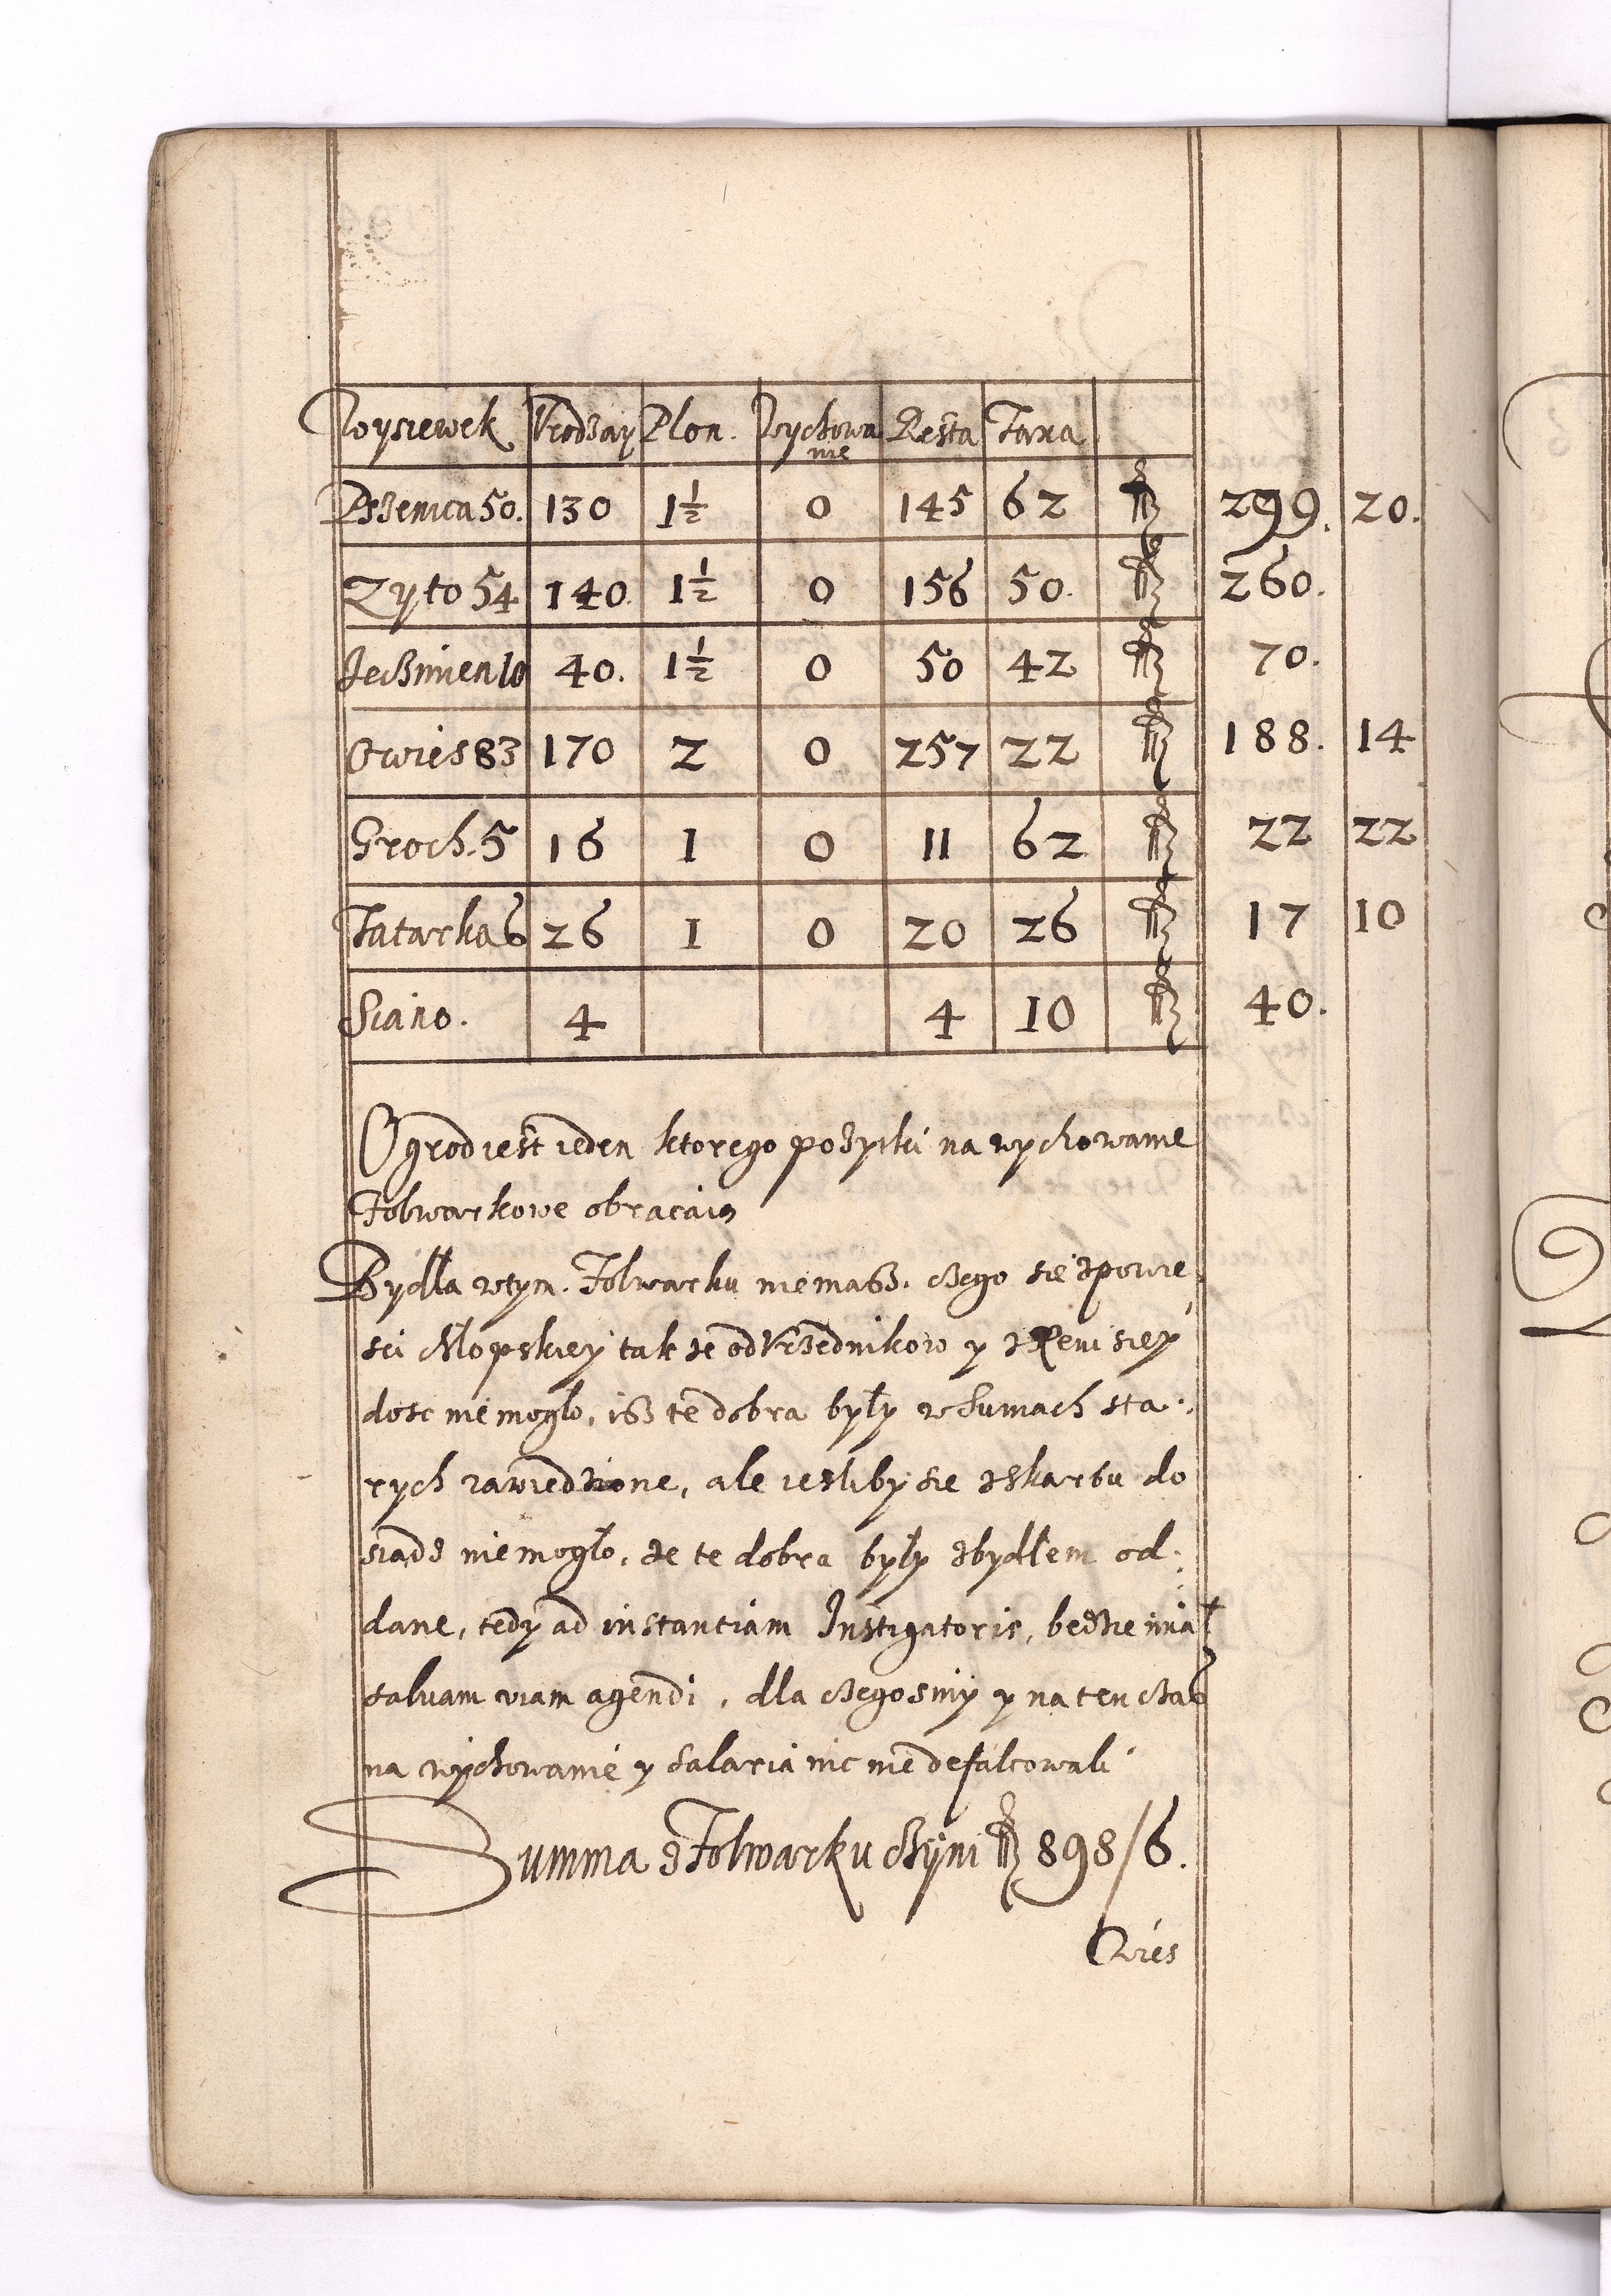 Wysiewek Vrodzay Plon. Wychowa nie Resta Taxa
Pszenica 50. 130 1½ 0 145 62 fl 299. 20.
Zyto 54 140. 1½ 0 156 50. fl 260.
Jeczmien 10 40. 1½ 0 50 42 fl 70.
Owies 83 170 2 0 257 22 fl 188. 14
Groch. 5 16 1 0 11 62 fl 22 22
Tatarka 6 26 1 0 20 26 fl 17 10
Siano. 4 4 10 fl 40.
Ogrod iest ieden ktorego pożytki na wychowanie
Folwarkowe obracaią
Bydła wtym. Folwarku niemasz. czego sie zpowie,
sci chłopskiey tak że od Vrzednikow y z Reuisiey
dosc niemogło, isz te dobra były w Sumach sta:
rych zawiedzione, ale iesliby sie z skarbu do
siadz niemogło, że te dobra były zbydłem od:
dane, tedy ad instantiam Instigatoris, bedzie miał
saluam viam agendi, dla czegosmy y na ten czas
na wychowanie y salaria nic nie defalcowali
Summa z Folwarku czyni fl 898/6.
Wies